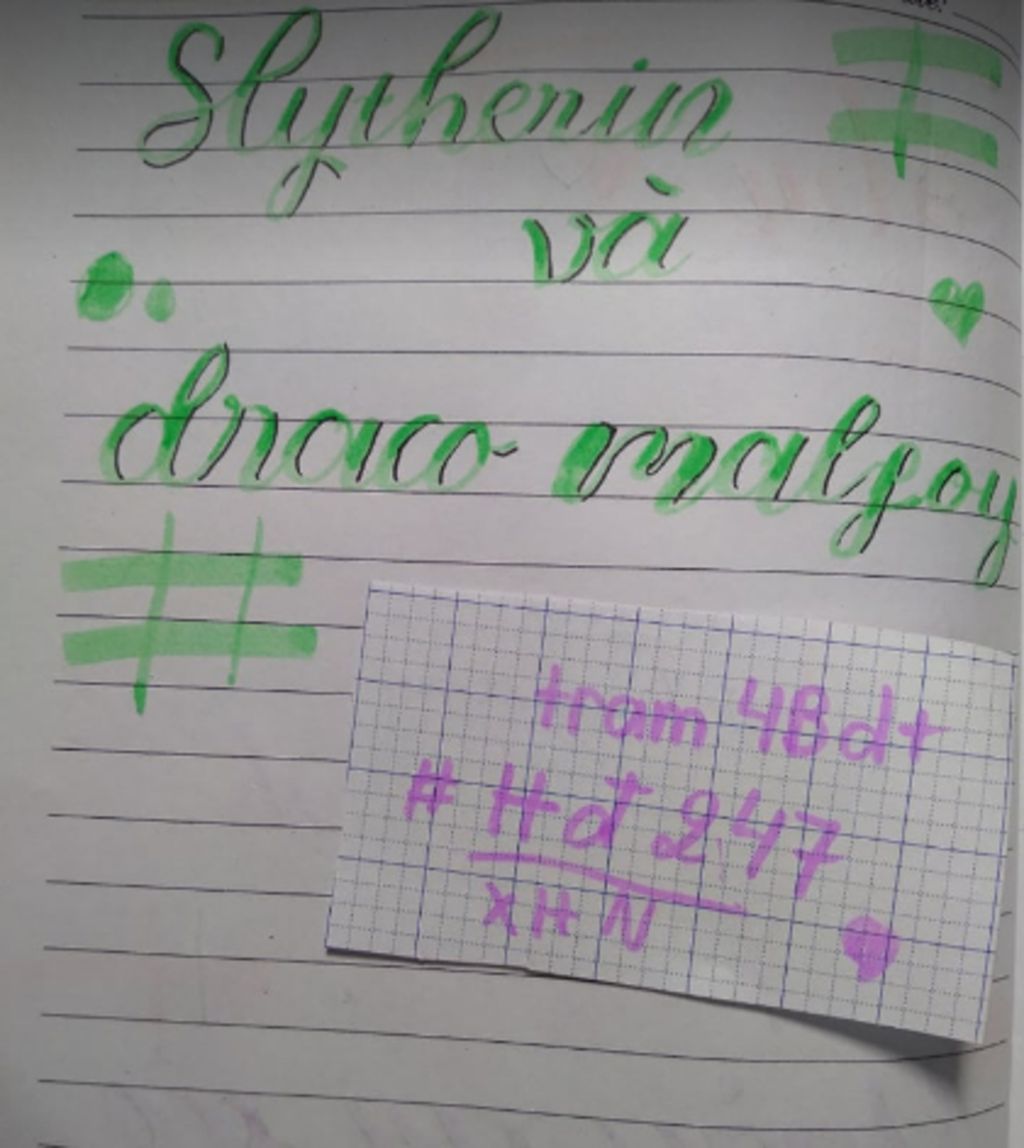 Slytherin
và
draco malfoy
tram 4Bdt
# Hđ 247
XHN